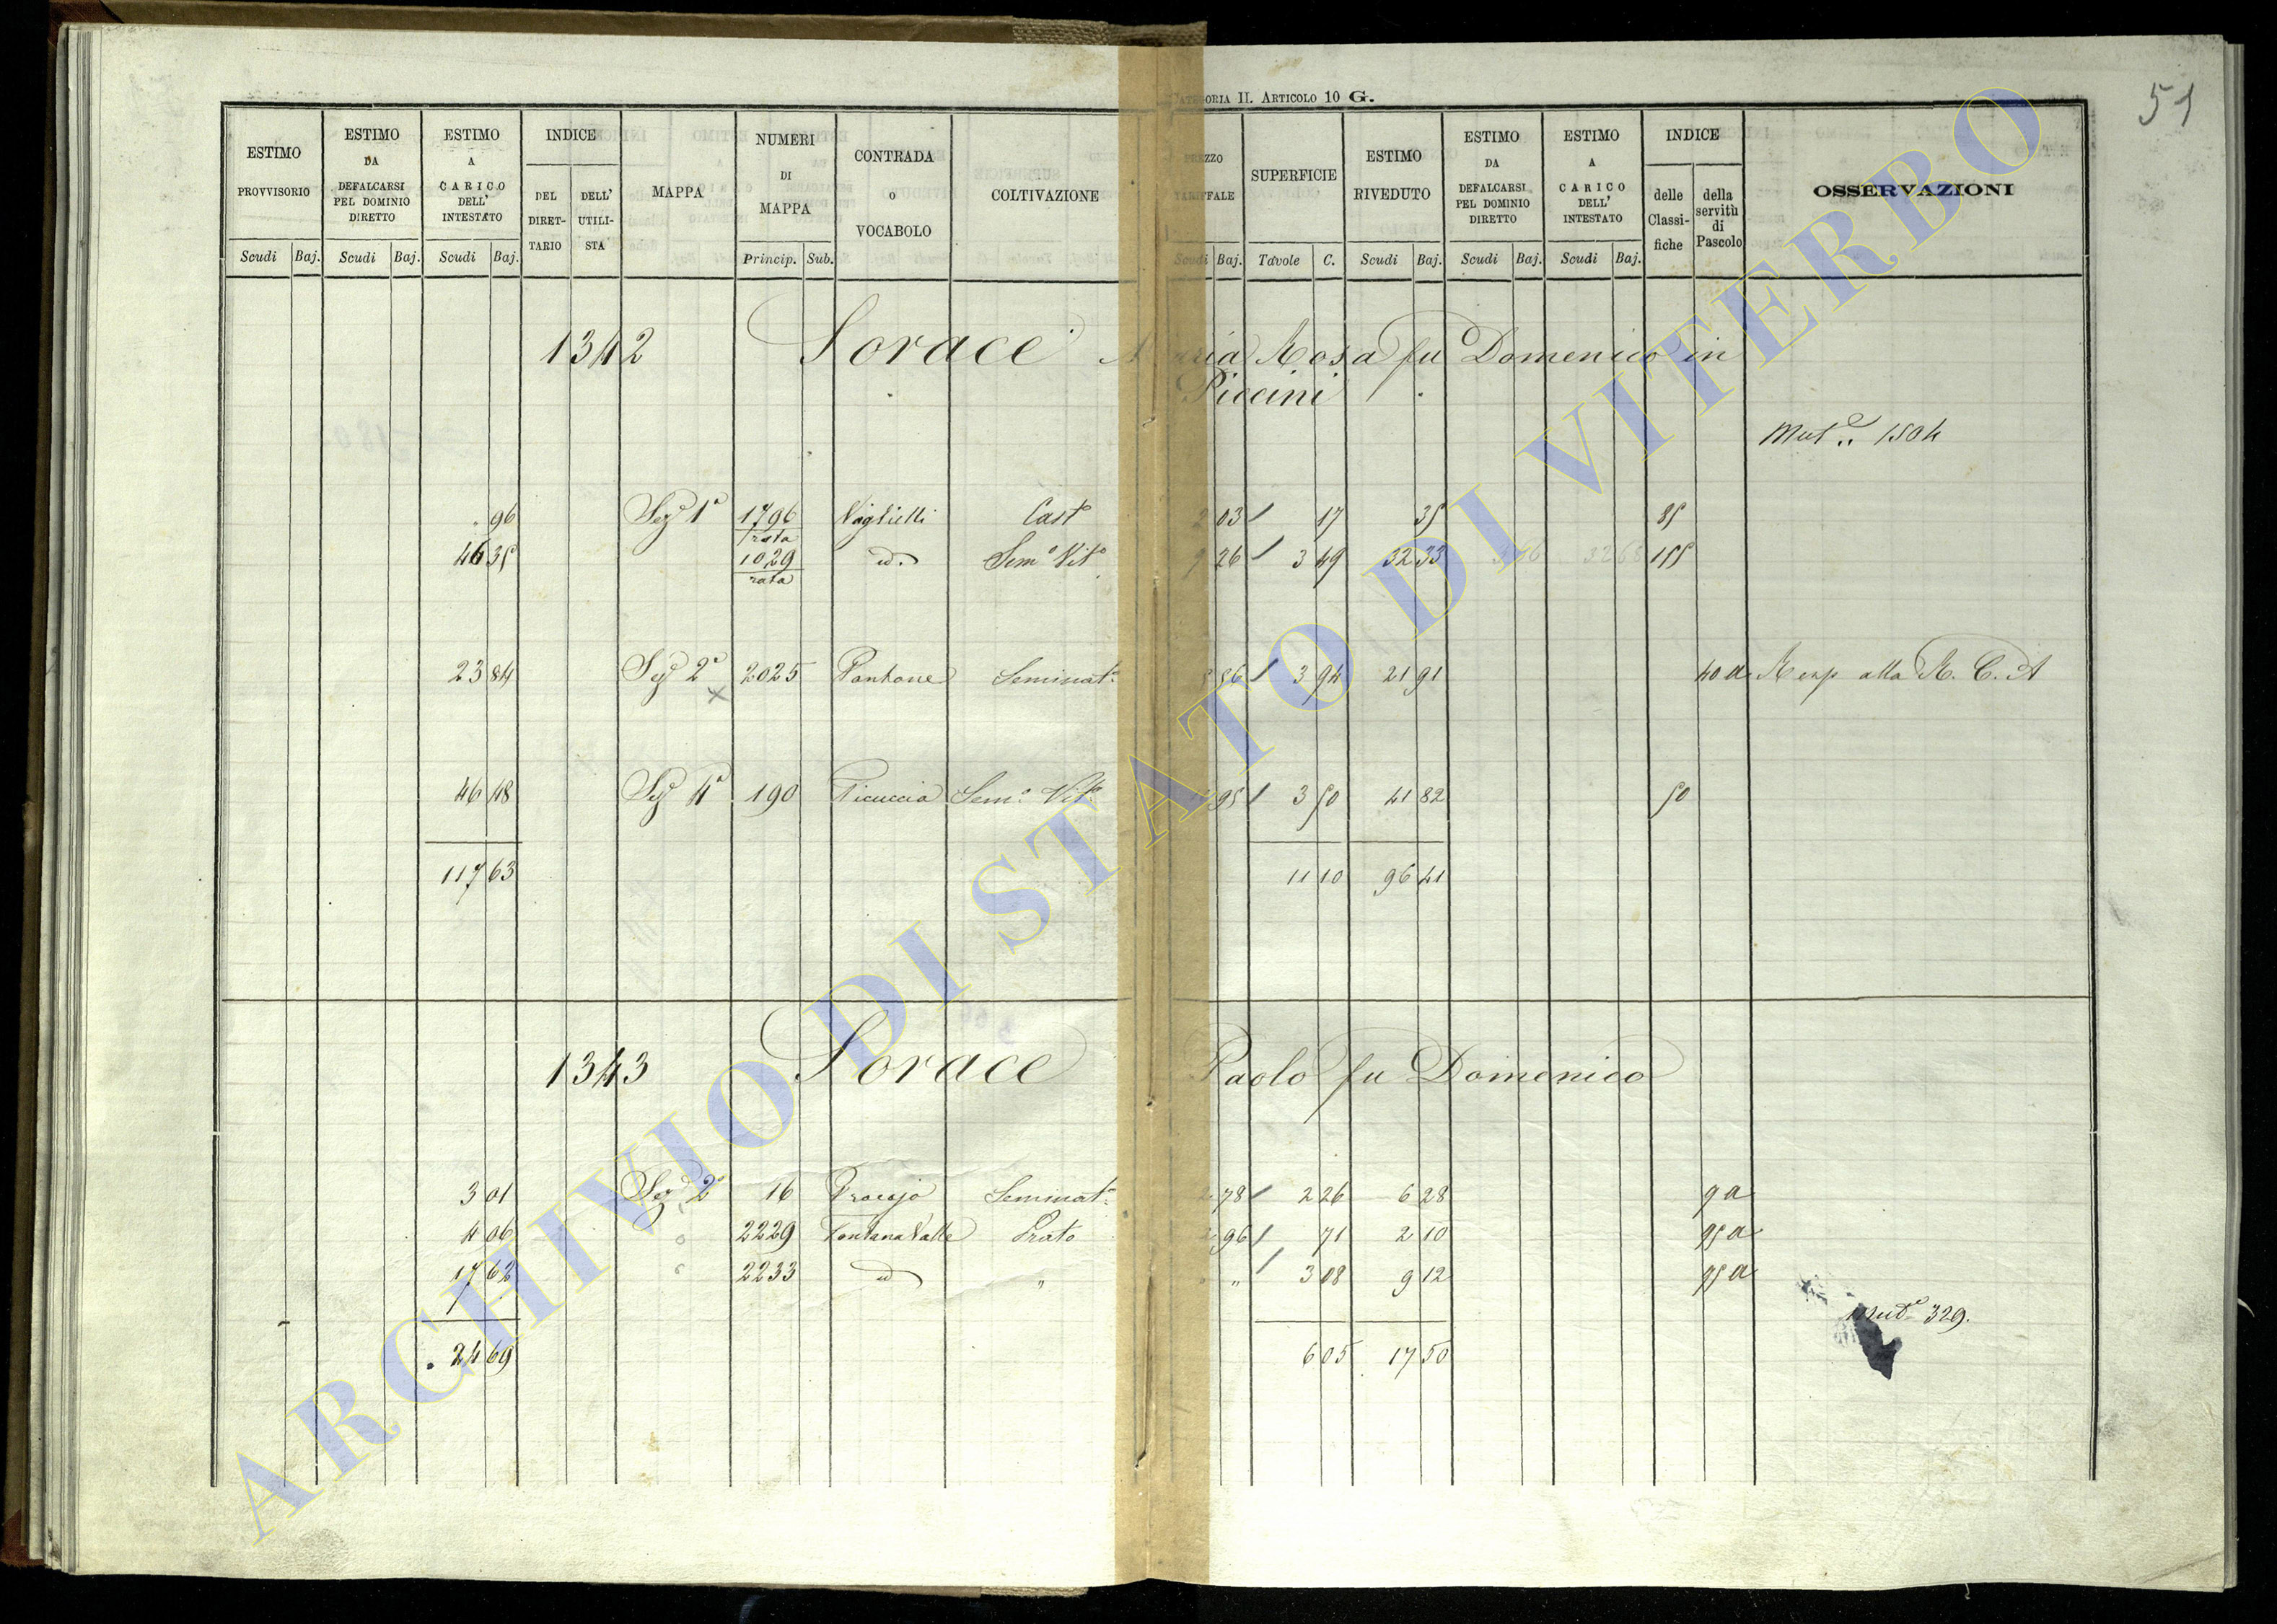 CATEGORIA II. ARTICOLO 10 G.
51
ESTIMO PROVVISORIO
ESTIMO DA DEFALCARSI PEL DOMINIO DIRETTO
ESTIMO A CARICO DELL' INTESTATO
INDICE
DEL DIRET-TARIO
DELL' UTILI-STA
MAPPA
NUMERI DI MAPPA
CONTRADA o VOCABOLO
COLTIVAZIONE
PREZZO TARIFFALE
SUPERFICIE
ESTIMO RIVEDUTO
ESTIMO DA DEFALCARSI PEL DOMINIO DIRETTO
ESTIMO A CARICO DELL' INTESTATO
INDICE
delle Classi-fiche
della servitù di Pascolo
OSSERVAZIONI
Scudi Baj. Scudi Baj. Scudi Baj. Princip. Sub. Scudi Baj. Tavole C. Scudi Baj. Scudi Baj. Scudi Baj.
1342 Sorace Maria Rosa fu Domenico in
Piccini
Mut.e 1504
" 96 Sez.e 1a 1796 rata Cast.o 03 17 35 85
46 35 1029 rata id. Sem.o Vit.o 9 26 3 49 32 33 155
23 84 Sez.e 2a 2025 Pantane Seminat.o 56 3 94 21 91 40 a Resp alla R. C. A
46 48 Sez.e 4a 190 Ficuccia Sem.o Vit.o 95 3 50 41 82 50
117 63 11 10 96 41
1343 Sorace Paolo fu Domenico
3 01 Sez.e 2a 16 Procojo Seminat.o 78 2 26 6 28 9 a
4 06 2229 Fontana Valle Prato 96 71 2 10 95 a
17 62 2233 id " " 3 08 9 12 95 a
Mut.e 329.
24 69 6 05 17 50
ARCHIVIO DI STATO DI VITERBO